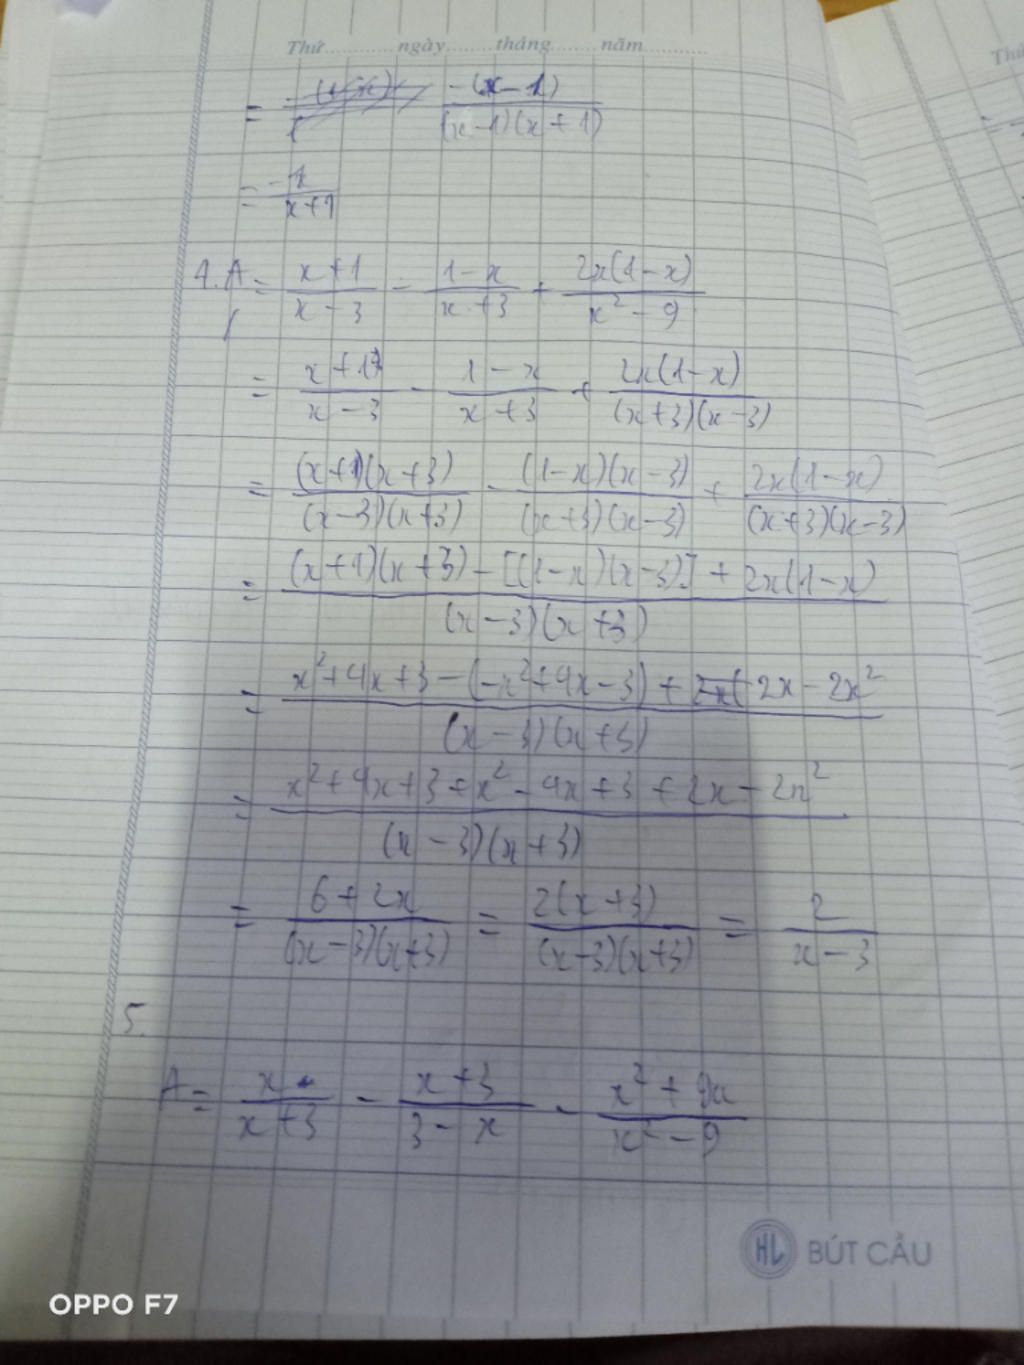 Thứ............ngày........tháng........năm............
= -(x-1)/((x-1)(x+1))
= -1/(x+1)
4. A = (x+1)/(x-3) - (1-x)/(x+3) + 2x(1-x)/(x²-9)
= (x+1)/(x-3) - (1-x)/(x+3) + 2x(1-x)/((x+3)(x-3))
= (x+1)(x+3)/((x-3)(x+3)) - (1-x)(x-3)/((x+3)(x-3)) + 2x(1-x)/((x+3)(x-3))
= ((x+1)(x+3) - [(1-x)(x-3)] + 2x(1-x))/((x-3)(x+3))
= (x²+4x+3-(-x²+4x-3)+2x-2x²)/((x-3)(x+3))
= (x²+4x+3+x²-4x+3+2x-2x²)/((x-3)(x+3))
= (6+2x)/((x-3)(x+3)) = 2(x+3)/((x-3)(x+3)) = 2/(x-3)
5.
A = x/(x+3) - (x+3)/(3-x) - (x²+9x)/(x²-9)
HL BÚT CẦU
OPPO F7